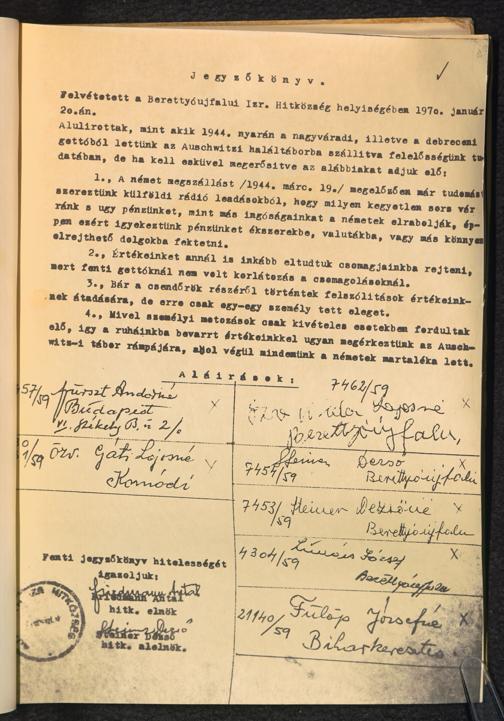 Jegyzőkönyv.
Felvétetett a Berettyóujfalui Izr. Hitközség helyiségében 1970. január
20.án.
Alulirottak, mint akik 1944. nyarán a nagyváradi, illetve a debreceni
gettóból lettünk az Auschwitzi haláltáborba szállitva felelősségünk tu-
datában, de ha kell esküvel megerősitve az alábbiakat adjuk elő:
1., A német megszállást /1944. márc. 19./ megelőzően már tudomást
szereztünk külföldi rádió leadásokból, hogy milyen kegyetlen sors vár
ránk s ugy pénzünket, mint más ingóságainkat a németek elrabolják, ép-
pen ezért igyekeztünk pénzünket ékszerekbe, valutákba, vagy más könnyen
elrejthető dolgokba fektetni.
2., Értékeinket annál is inkább eltudtuk csomagjainkba rejteni,
mert fenti gettóknál nem volt korlátozás a csomagolásoknál.
3., Bár a csendőrök részéről történtek felszólitások értékeink-
nek átadására, de erre csak egy-egy személy tett eleget.
4., Mivel személyi motozások csak kivételes esetekben fordultak
elő, igy a ruháinkba bevarrt értékeinkkel ugyan megérkeztünk az Ausch-
witz-i tábor rámpájára, ahol végül mindemünk a németek martaléka lett.
Aláirások:
57/59 Fürszt Andorné
Budapest
VI. Székely B. u 2/
1/59 Özv. Gáti Lajosné
Komádi
7462/59
Özv Lajosné
Berettyóújfalu,
7454/59 Steiner Dezső
Berettyóújfalu
7453/59 Steiner Dezsőné
Berettyóújfalu
4304/59 József
Berettyóújfalu
21140/59 Fülöp Józsefné
Biharkeresztes
Fenti jegyzőkönyv hitelességét
igazoljuk:
Friedmann Antal
Friedmann Antal
hitk. elnök
Steiner Dezső
Steiner Dezső
hitk. alelnök.
HITKÖZSÉG